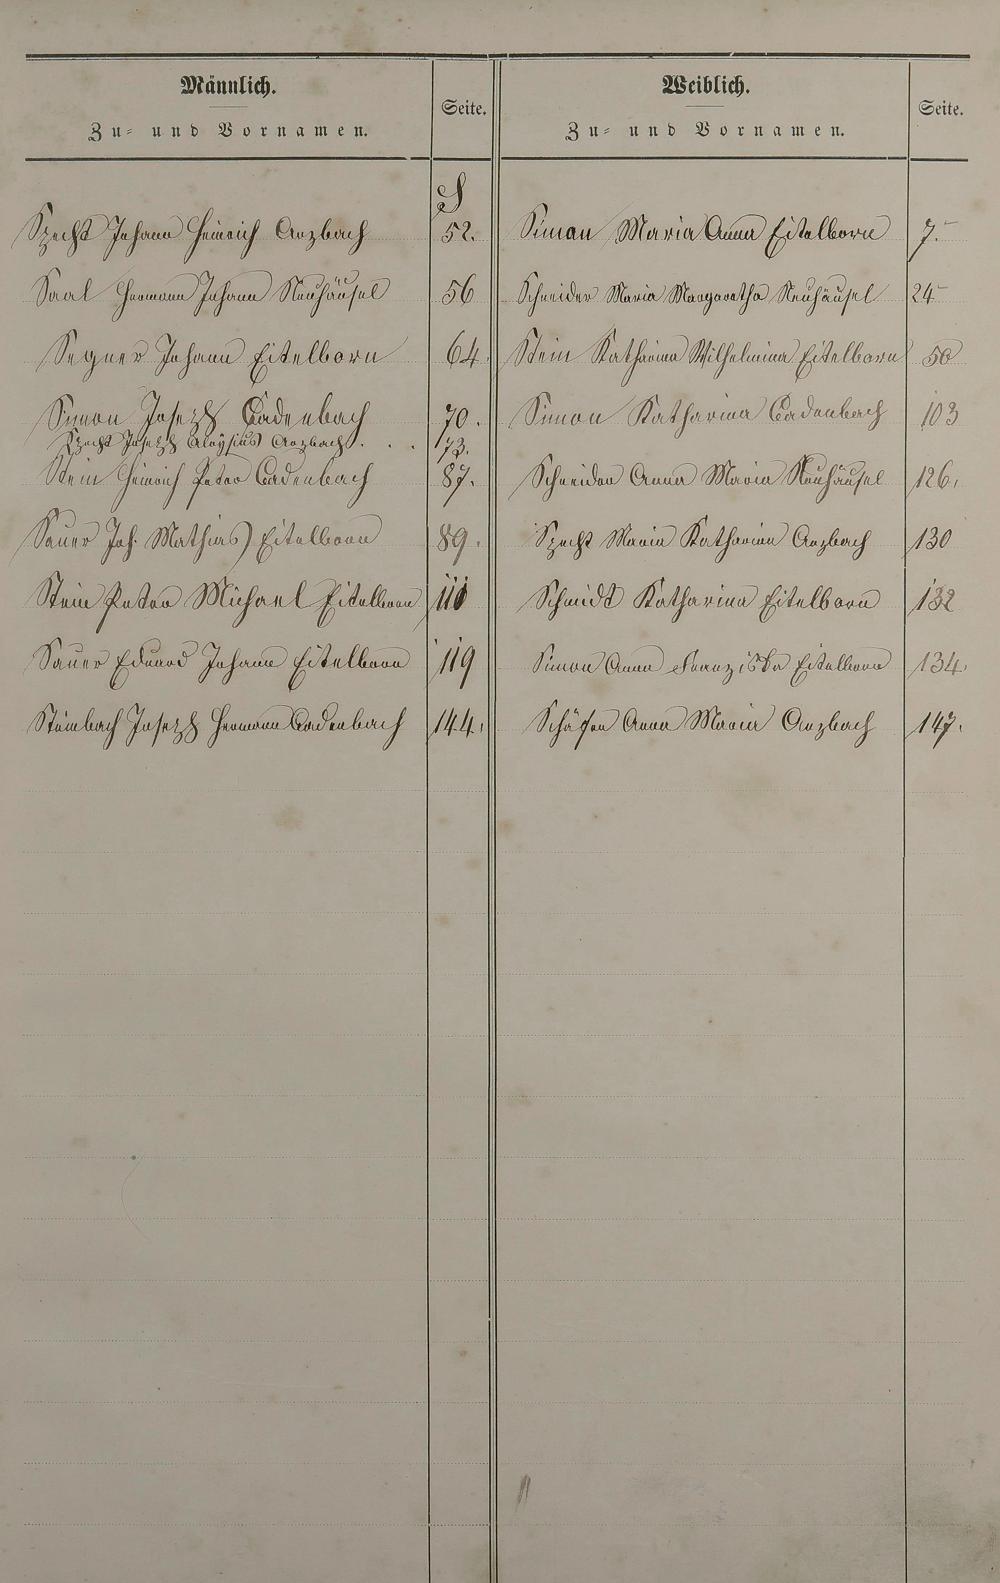 Männlich.
Zu= und Vornamen.
Seite.
Weiblich.
Zu= und Vornamen.
Seite.
S
Specht Johann Heinrich Arzbach 52.
Saal Hermann Johann Neuhäusel 56
Segner Johann Eitelborn 64.
Simon Joseph Cadenbach 70.
Specht Joseph Aloysius Arzbach . . . 73.
Stein Heinrich Peter Cadenbach 87.
Sauer Joh. Mathias Eitelborn 89.
Stein Peter Michael Eitelborn 110
Sauer Eduard Johann Eitelborn 119
Steinbach Joseph Hermann Cadenbach 144.
Simon Maria Anna Eitelborn 7.
Schneider Maria Margaretha Neuhäusel 24
Stein Katharina Wilhelmina Eitelborn 50
Simon Katharina Cadenbach 103
Schneider Anna Maria Neuhäusel 126.
Specht Maria Katharina Arzbach 130
Schmidt Katharina Eitelborn 132
Simon Anna Franziska Eitelborn 134.
Schäfer Anna Maria Arzbach 147.